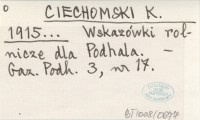 O CIECHOMSKI K.
1915... Wskazówki rol-
nicze dla Podhala. —
Gaz. Podh. 3, nr 17.